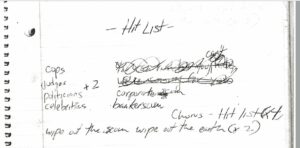 - Hit List -
cops
judges x 2
politicians corporate scum
celebrities bankerscum
Chorus - Hit list
wipe out the scum wipe out the earth (x 2)